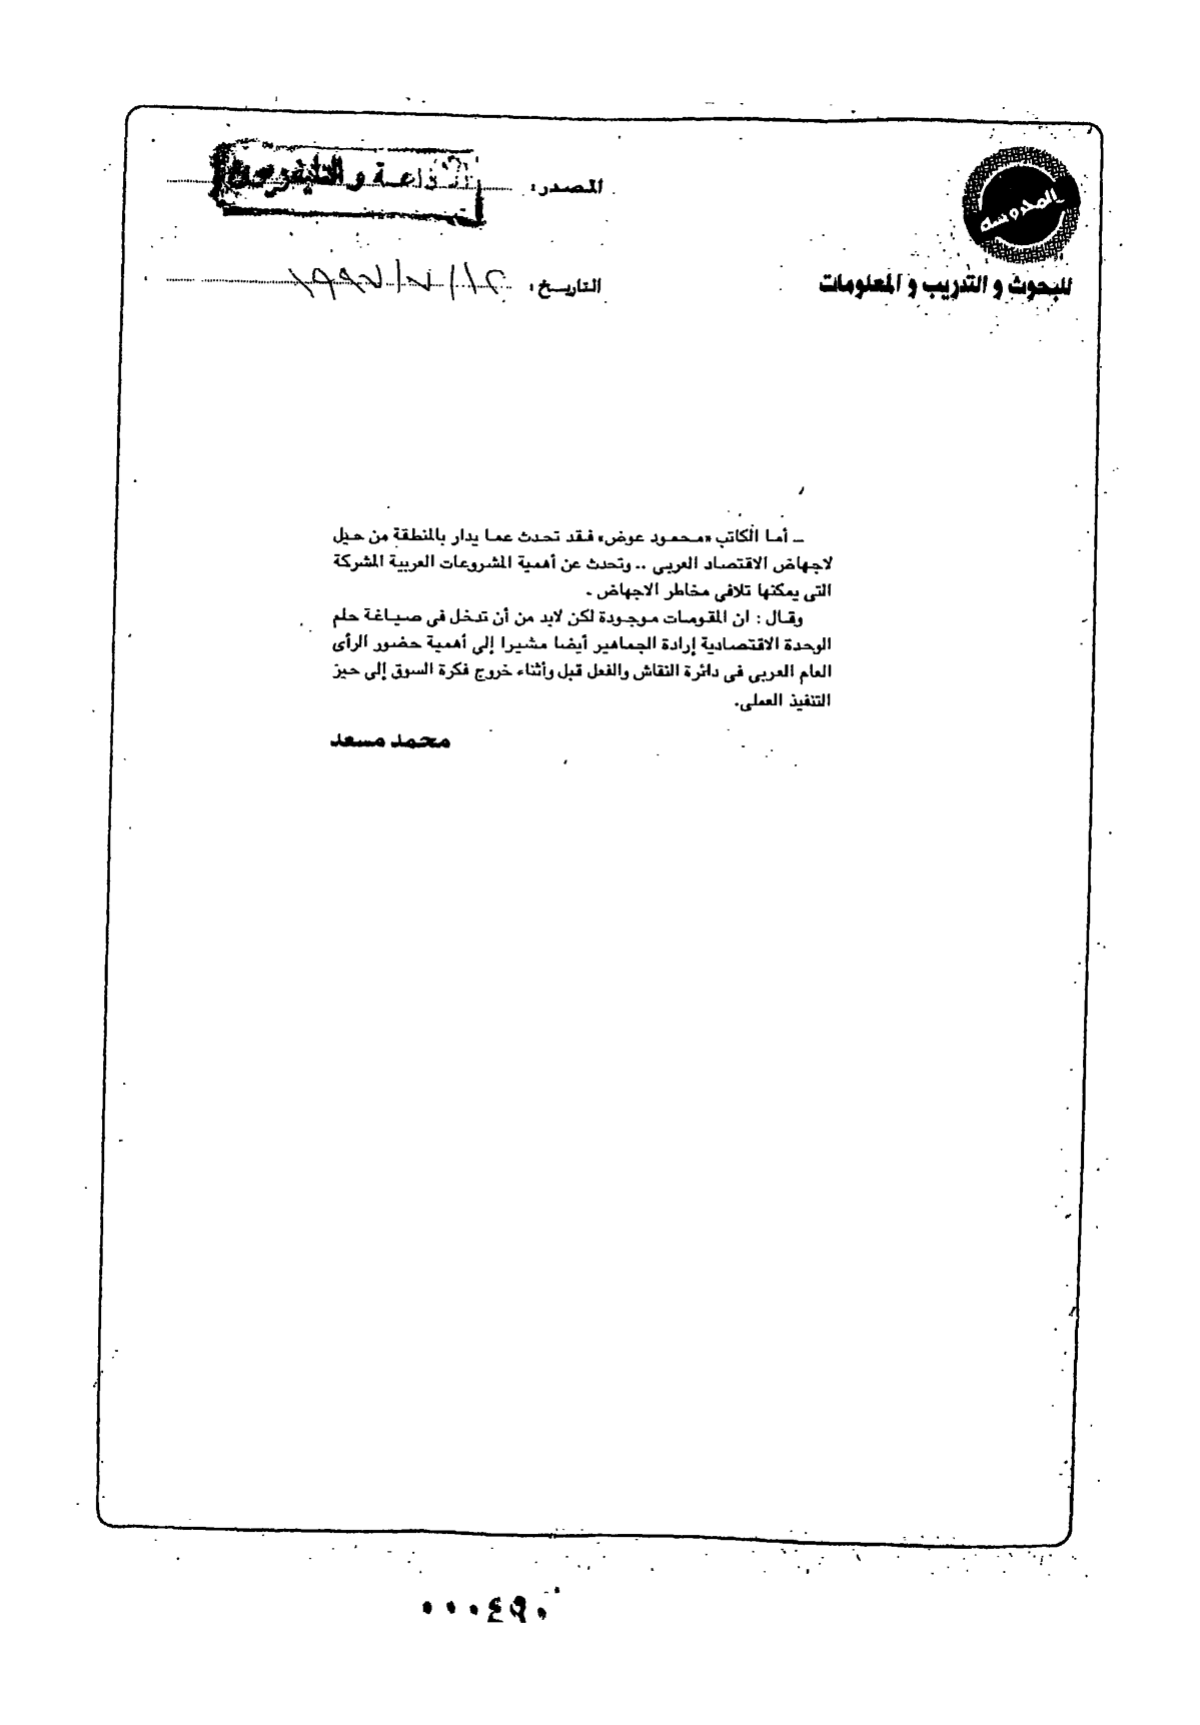 المحروسة
للبحوث و التدريب و المعلومات
المصدر: الاذاعة و التليفزيون
التاريخ:
ـ أما الكاتب «محمود عوض» فقد تحدث عما يدار بالمنطقة من حيل
لاجهاض الاقتصاد العربى .. وتحدث عن أهمية المشروعات العربية المشركة
التى يمكنها تلافى مخاطر الاجهاض .
وقال : ان المقومات موجودة لكن لابد من أن تدخل فى صياغة حلم
الوحدة الاقتصادية إرادة الجماهير أيضا مشيرا إلى أهمية حضور الرأى
العام العربى فى دائرة النقاش والفعل قبل وأثناء خروج فكرة السوق إلى حيز
التنفيذ العملى.
محمد مسعد